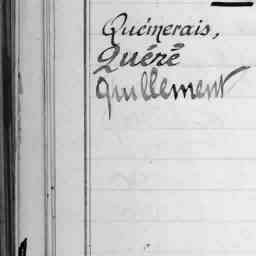 Quémerais,
Quéré
Quillement